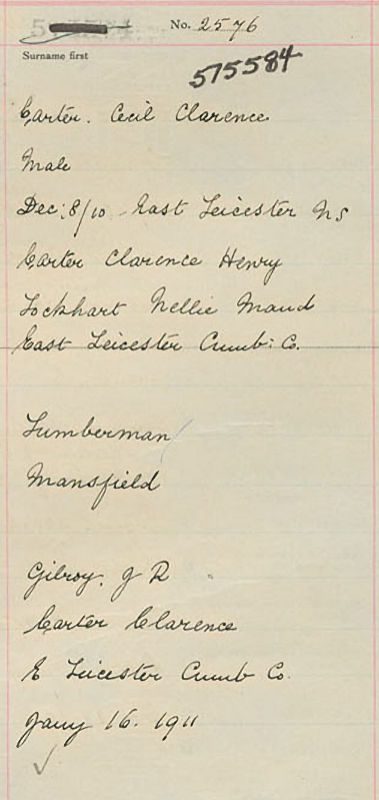 No. 2576
Surname first
575584
Carter. Cecil Clarence
Male
Dec: 8/10 East Leicester N.S
Carter Clarence Henry
Lockhart Nellie Maud
East Leicester Cumb: Co.
Lumberman
Mansfield
Gilroy. J R
Carter Clarence
E Leicester Cumb Co.
Jany 16. 1911